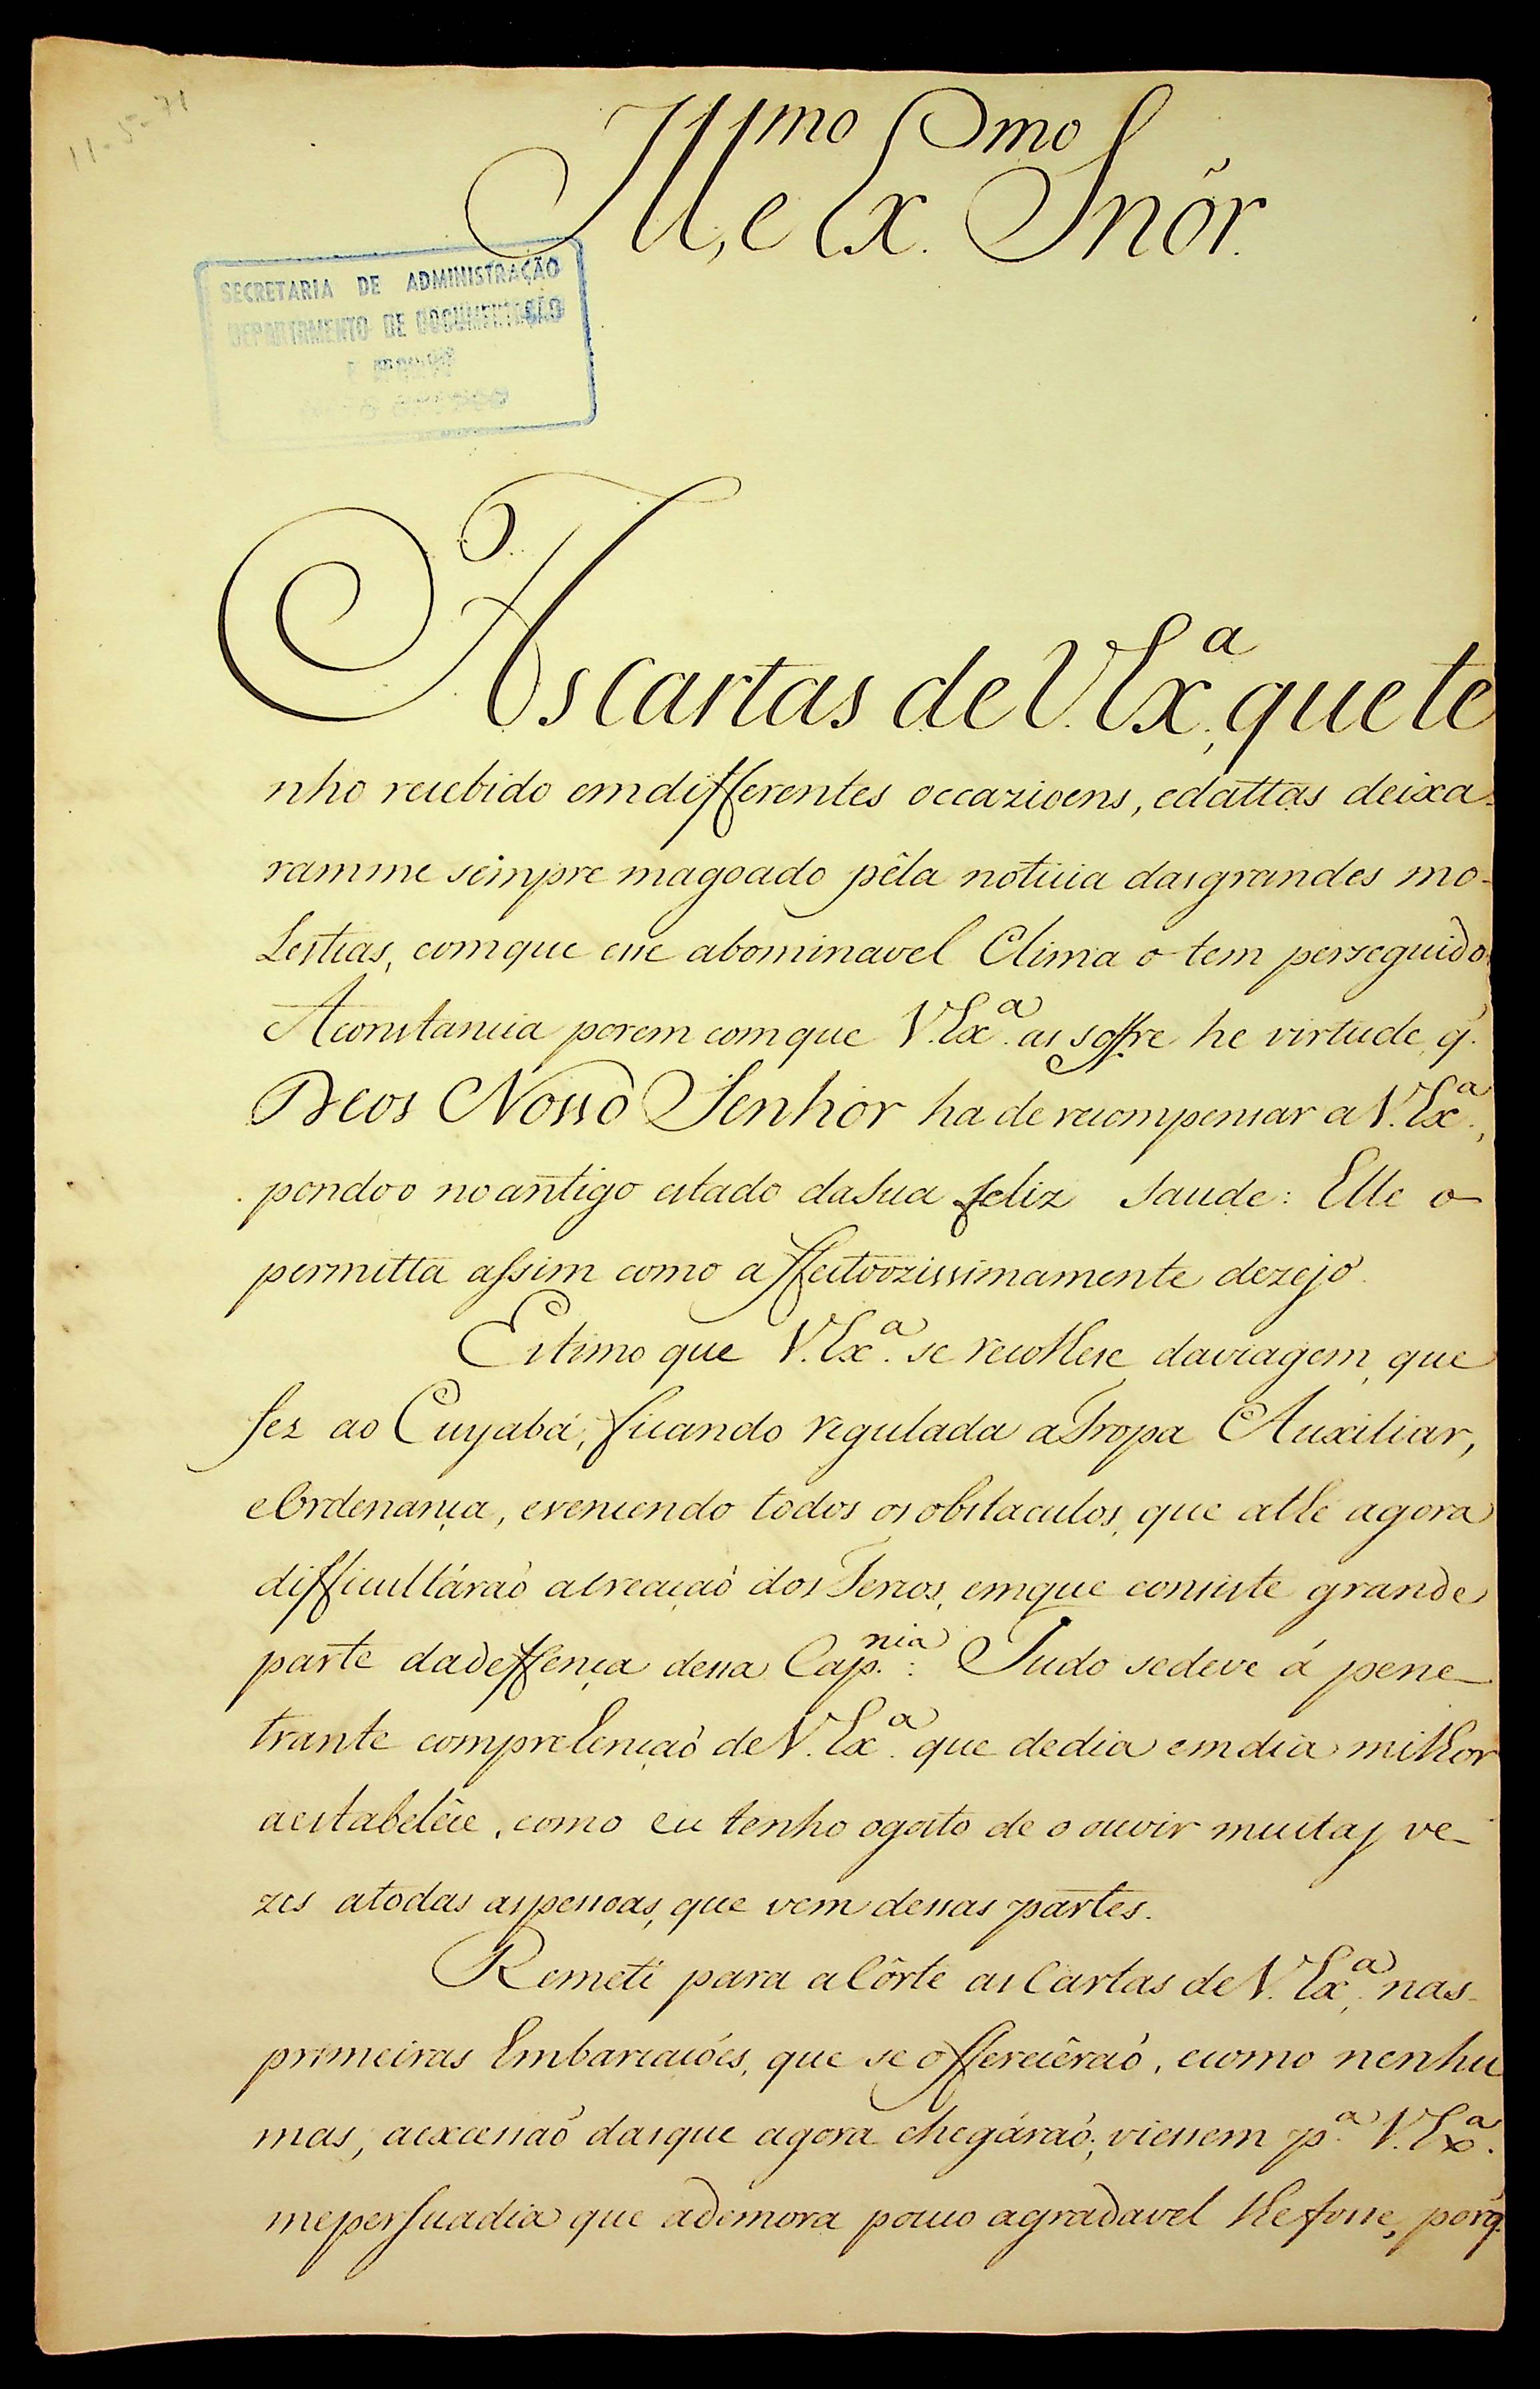 11-5-71
Ill.mo, e Ex.mo Snõr.
SECRETARIA DE ADMINISTRAÇÃO
DEPARTAMENTO DE DOCUMENTAÇÃO
E ARQUIVO
As cartas de V. Ex.ª, que te
nho recebido em differentes occazioens, e dattas deixa-
ramme sempre magoado pêla noticia das grandes mo-
Lestias, com que esse abominavel Clima o tem perseguido.
A constancia porem com que V. Ex.ª as soffre he virtude, q.
Deos Nosso Senhor ha de recompensar a V. Ex.ª,
pondo o no antigo estado da Sua feliz Saude: Elle o
permitta assim como affectuozissimamente dezejo.
Estimo que V. Ex.ª se recolhese da viagem, que
fez ao Cuyabá, ficando regulada a Tropa Auxiliar,
e Ordenança, e vencendo todos os obstaculos, que athé agora
difficultáraò a creaçaò dos Terços, em que consiste grande
parte da deffença dessa Cap.nia: Tudo se deve á pene-
trante comprehençaò de V. Ex.ª que de dia em dia milhor
a estabelêce, como eu tenho o gosto de o ouvir muitas ve-
zes a todas as pessoas, que vem dessas partes.
Remeti para a Côrte as Cartas de V. Ex.ª, nas
primeiras Embarcaçóes, que se offerecêraò, e como nenhu
mas, a excessaò das que agora chegáraò, viessem p.ª V. Ex.ª.
me persuadia que a demora pouco agradavel lhe fosse, porq.